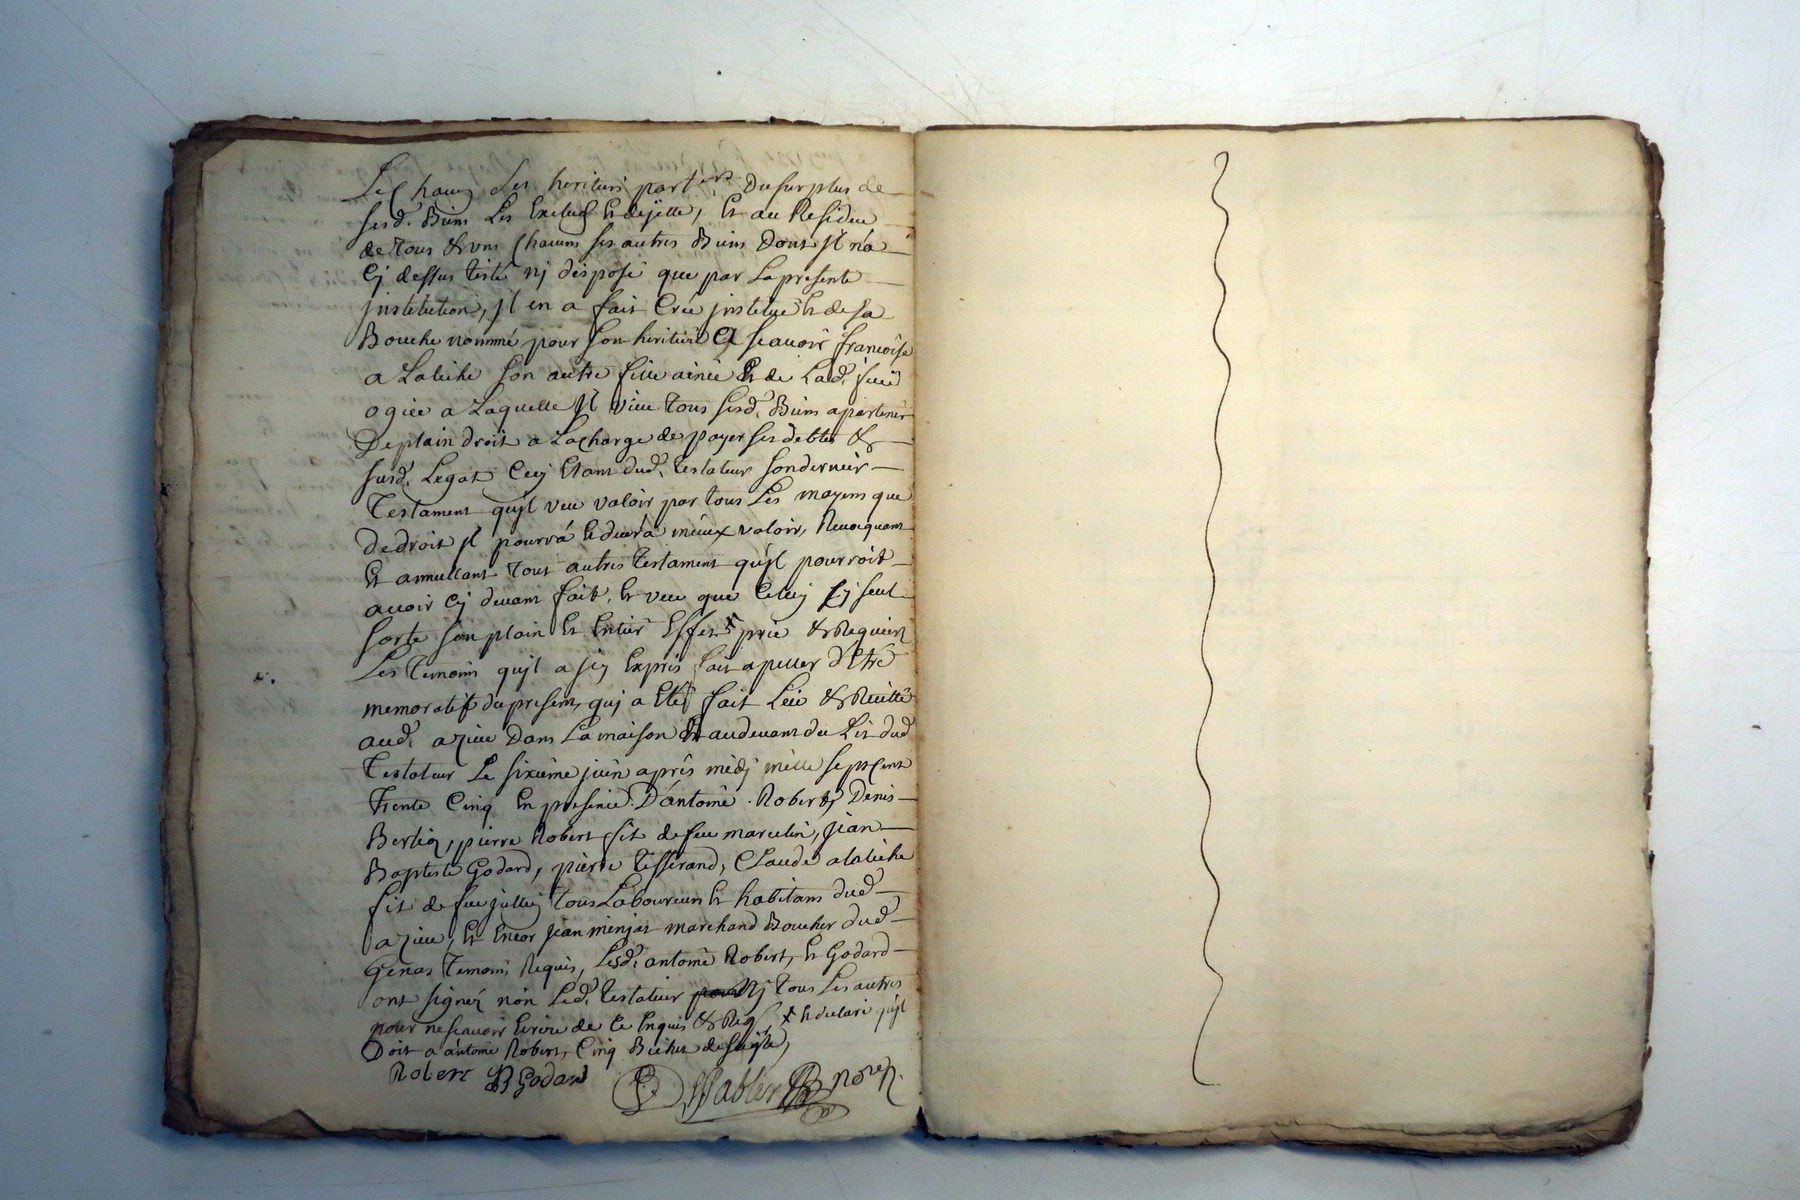 les heritiers part.ers du surplus de
sesd. Biens Les Exclus Et dejette, Et au Residue
de Tous & uns Chacuns ses autres Biens Dont Jl n'a
Cy dessus testé nj disposé que par La presente
jnstitution, jl en a fait Créé jnstitue Et de sa
Bouche nommé pour son heritiere a scauoir francoise
a Latiche son autre fille ainée Et de Lad. feue
ogiée a Laquelle Jl Veut Tous sesd. Biens apartenir
De plain droit a La Charge de payer ses debtes &
susd. Legat Cecy Etant dud. testateur son dernier
Testament qu'jl veu valoir par tous Les moyens que
de droit jl pourrá Et deura mieux valoir, Reuocquant
Et annullant Tout autres Testament qu'jl pourroit
auoir Cy deuant fait, Et veu que Celuy Cy seul
sorte son plain Et Entier Effet prie & Requiert
Les Temoins qu'jl a jcy Expres fait apeller d'Etre
memoratif du present, quj a Eté fait Leu & Recitté
aud. azieu Dans La maison Et audeuant du Lit dud
Testateur Le sixième juin après midj mille sept Cent
Trente Cinq En presence D'antoine Robert, Denis
pierre Robert fis de feu marcelin, jean
Baptiste Godard, pierre Tisserand, Claude alatiche
fis de feu Tous Laboureurs Et habitans dud
azieu, Et Encor jean marchand Boucher dud
Genas Temoins Requis, Lesd. antoine Robert, Et Godard
ont signéz non Led. Testateur nj Tous Les autres
pour ne scauoir Ecrire de Ce Enquis & Req. x Et declare qu'jl
Doit a antoine Robert, Cinq Bichet de segle,
Robert JB Godard Nore.